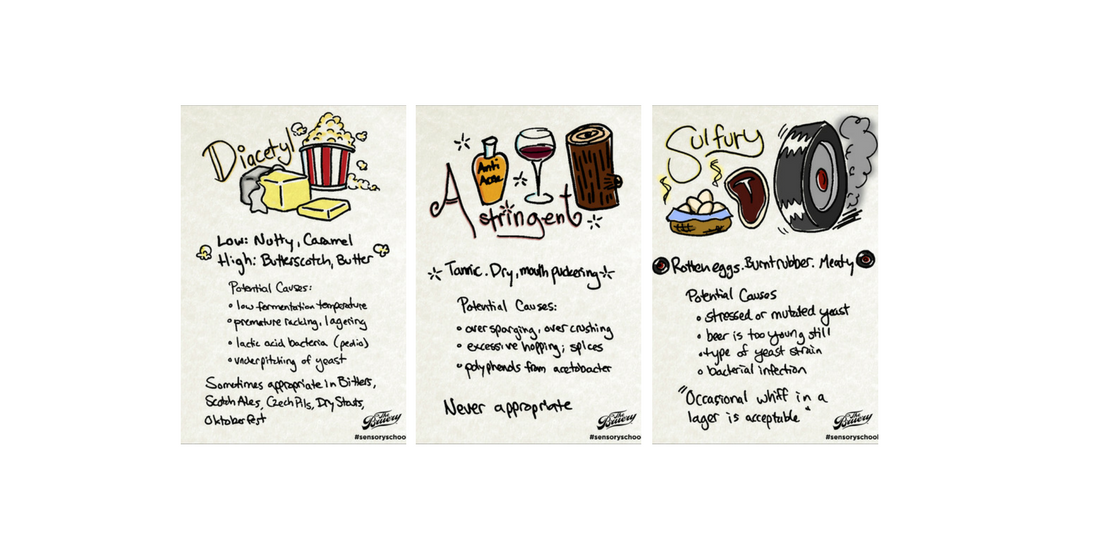 Diacetyl
Low: Nutty, Caramel
High: Butterscotch, Butter
Potential Causes:
• low fermentation temperature
• premature racking, lagering
• lactic acid bacteria (pedio)
• underpitching of yeast
Sometimes appropriate in Bitters,
Scotch Ales, Czech Pils, Dry Stouts,
Oktoberfest
The Bruery
#sensoryschoo
Anti
Acne
Astringent
Tannic. Dry, mouth puckering
Potential Causes:
• over sparging, over crushing
• excessive hopping; spices
• polyphenols from acetobacter
Never appropriate
The Bruery
#sensoryschoo
Sulfury
Rotten eggs. Burnt rubber. Meaty
Potential Causes
• stressed or mutated yeast
• beer is too young still
• type of yeast strain
• bacterial infection
"Occasional whiff in a
lager is acceptable"
The Bruery
#sensoryschool